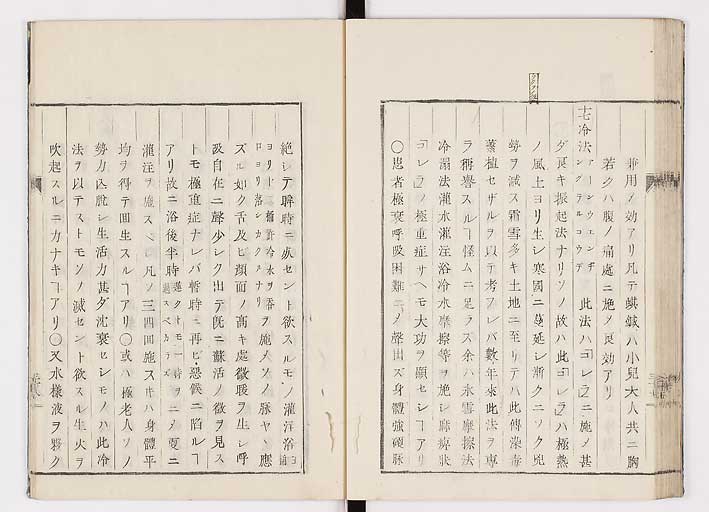 兼用ノ効アリ凡テ蜞鍼ハ小兒大人共ニ胸
若クハ腹ノ痛處ニ施ノ良効アリ
十七冷法 アーンウェンヂングテルコウデ 此法ハ「コレラ」ニ施ノ甚
ダ良キ振起法ナリソノ故ハ此「コレラ」ハ極熱
ノ風土ヨリ生シ寒國ニ蔓延シ漸クニソク兇
勢ヲ減ス霜雪多キ土地ニ至リテハ此傳染毒
蕃植セザルヲ以テ考フレバ數年來此法ヲ專
ラ稱譽スルヿ怪ムニ足ラズ余ハ氷雪摩擦法
冷溻法灌水灌注浴冷水摩擦等ヲ施シ麻痺狀
「コレラ」ノ極重症サヘモ大功ヲ顯セシヿアリ
〇患者極衰呼吸困難ニノ聲出ズ身體強硬脉
絶シテ瞬時ニ死セント欲スルモノ灌注浴
ヲ施スソノ脉ヤヽ應
ズル如ク舌及ヒ顔面ノ高キ處微暖ヲ生シ呼
吸自在ニ聲少シク出テ既ニ蘇活ノ徴ヲ見ス
トモ極重症ナレバ暫時ニ再ビ惡候ニ陷ルヿ
アリ故ニ浴後半時 遲クトモ一時ヲ過スベカラズ ニノ更ニ
灌注ヲ施スヘ凡ソ三四回施スキハ身體平
均ヲ得テ回生スルヿアリ〇或ハ極老人ソノ
勢力凶脫シ生活力甚ダ沈衰セシモノハ此冷
法ヲ以テストモソノ滅セント欲スル生火ヲ
吹起スルニカナキヿアリ〇又水樣液ヲ夥ク